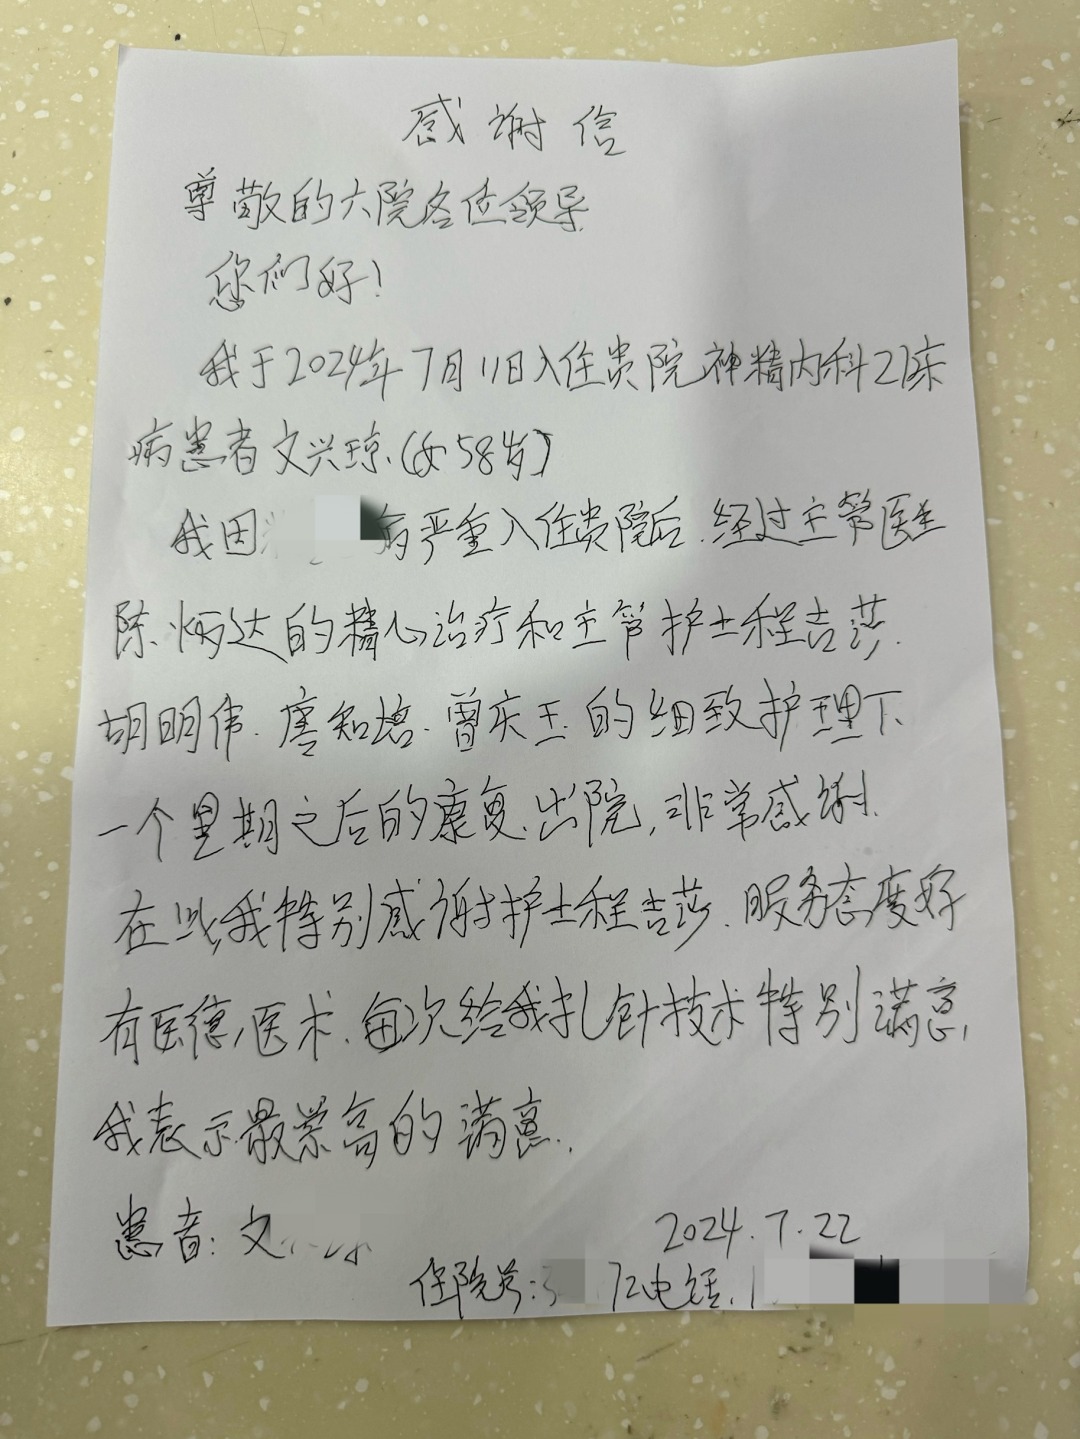 感谢信
尊敬的大院各位领导
您们好!
我于2024年7月11日入住贵院神精内科21床
病患者文兴琼.(女58岁)
我因 病严重入住贵院后.经过主管医生
陈炳达的精心治疗和主管护士程吉莎.
胡明伟.唐知培.曾庆玉的细致护理下
一个星期之后的康复.出院,非常感谢.
在此,我特别感谢护士程吉莎.服务态度好
有医德,医术.每次给我扎针技术特别满意,
我表示最崇高的满意.
患者:文
2024.7.22
住院号:3 72电话.1